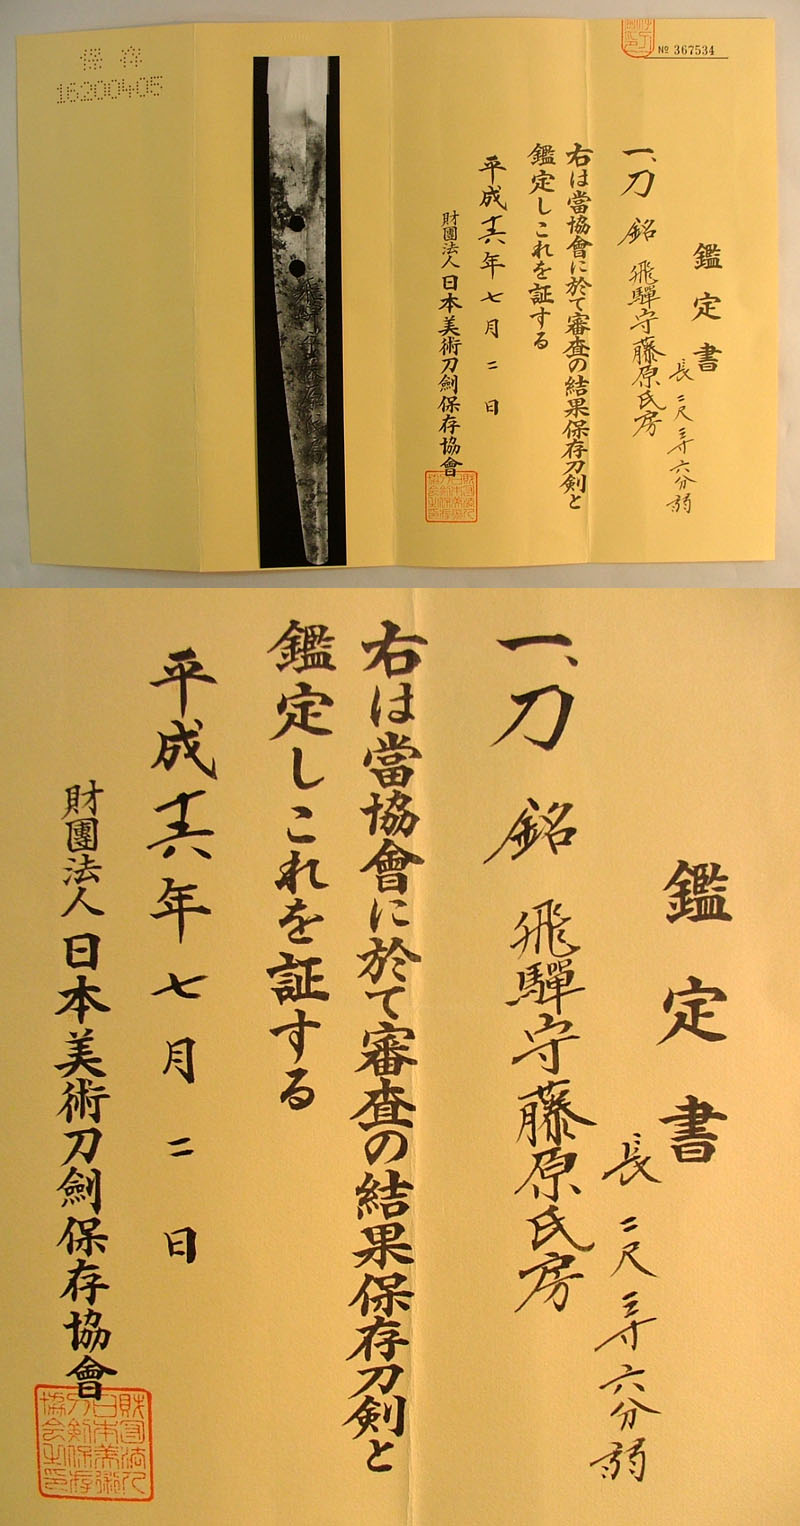 № 367534
鑑定書
長二尺三寸六分弱
一、刀 銘 飛驒守藤原氏房
右は當協會に於て審査の結果保存刀剣と
鑑定しこれを証する
平成十六年七月二日
財團法人日本美術刀劍保存協會
保存
16200405
飛驒守藤原氏房
鑑定書
長二尺三寸六分弱
一、刀 銘 飛驒守藤原氏房
右は當協會に於て審査の結果保存刀剣と
鑑定しこれを証する
平成十六年七月二日
財團法人日本美術刀劍保存協會
財団法人
日本美術
刀剣保存
協会之印